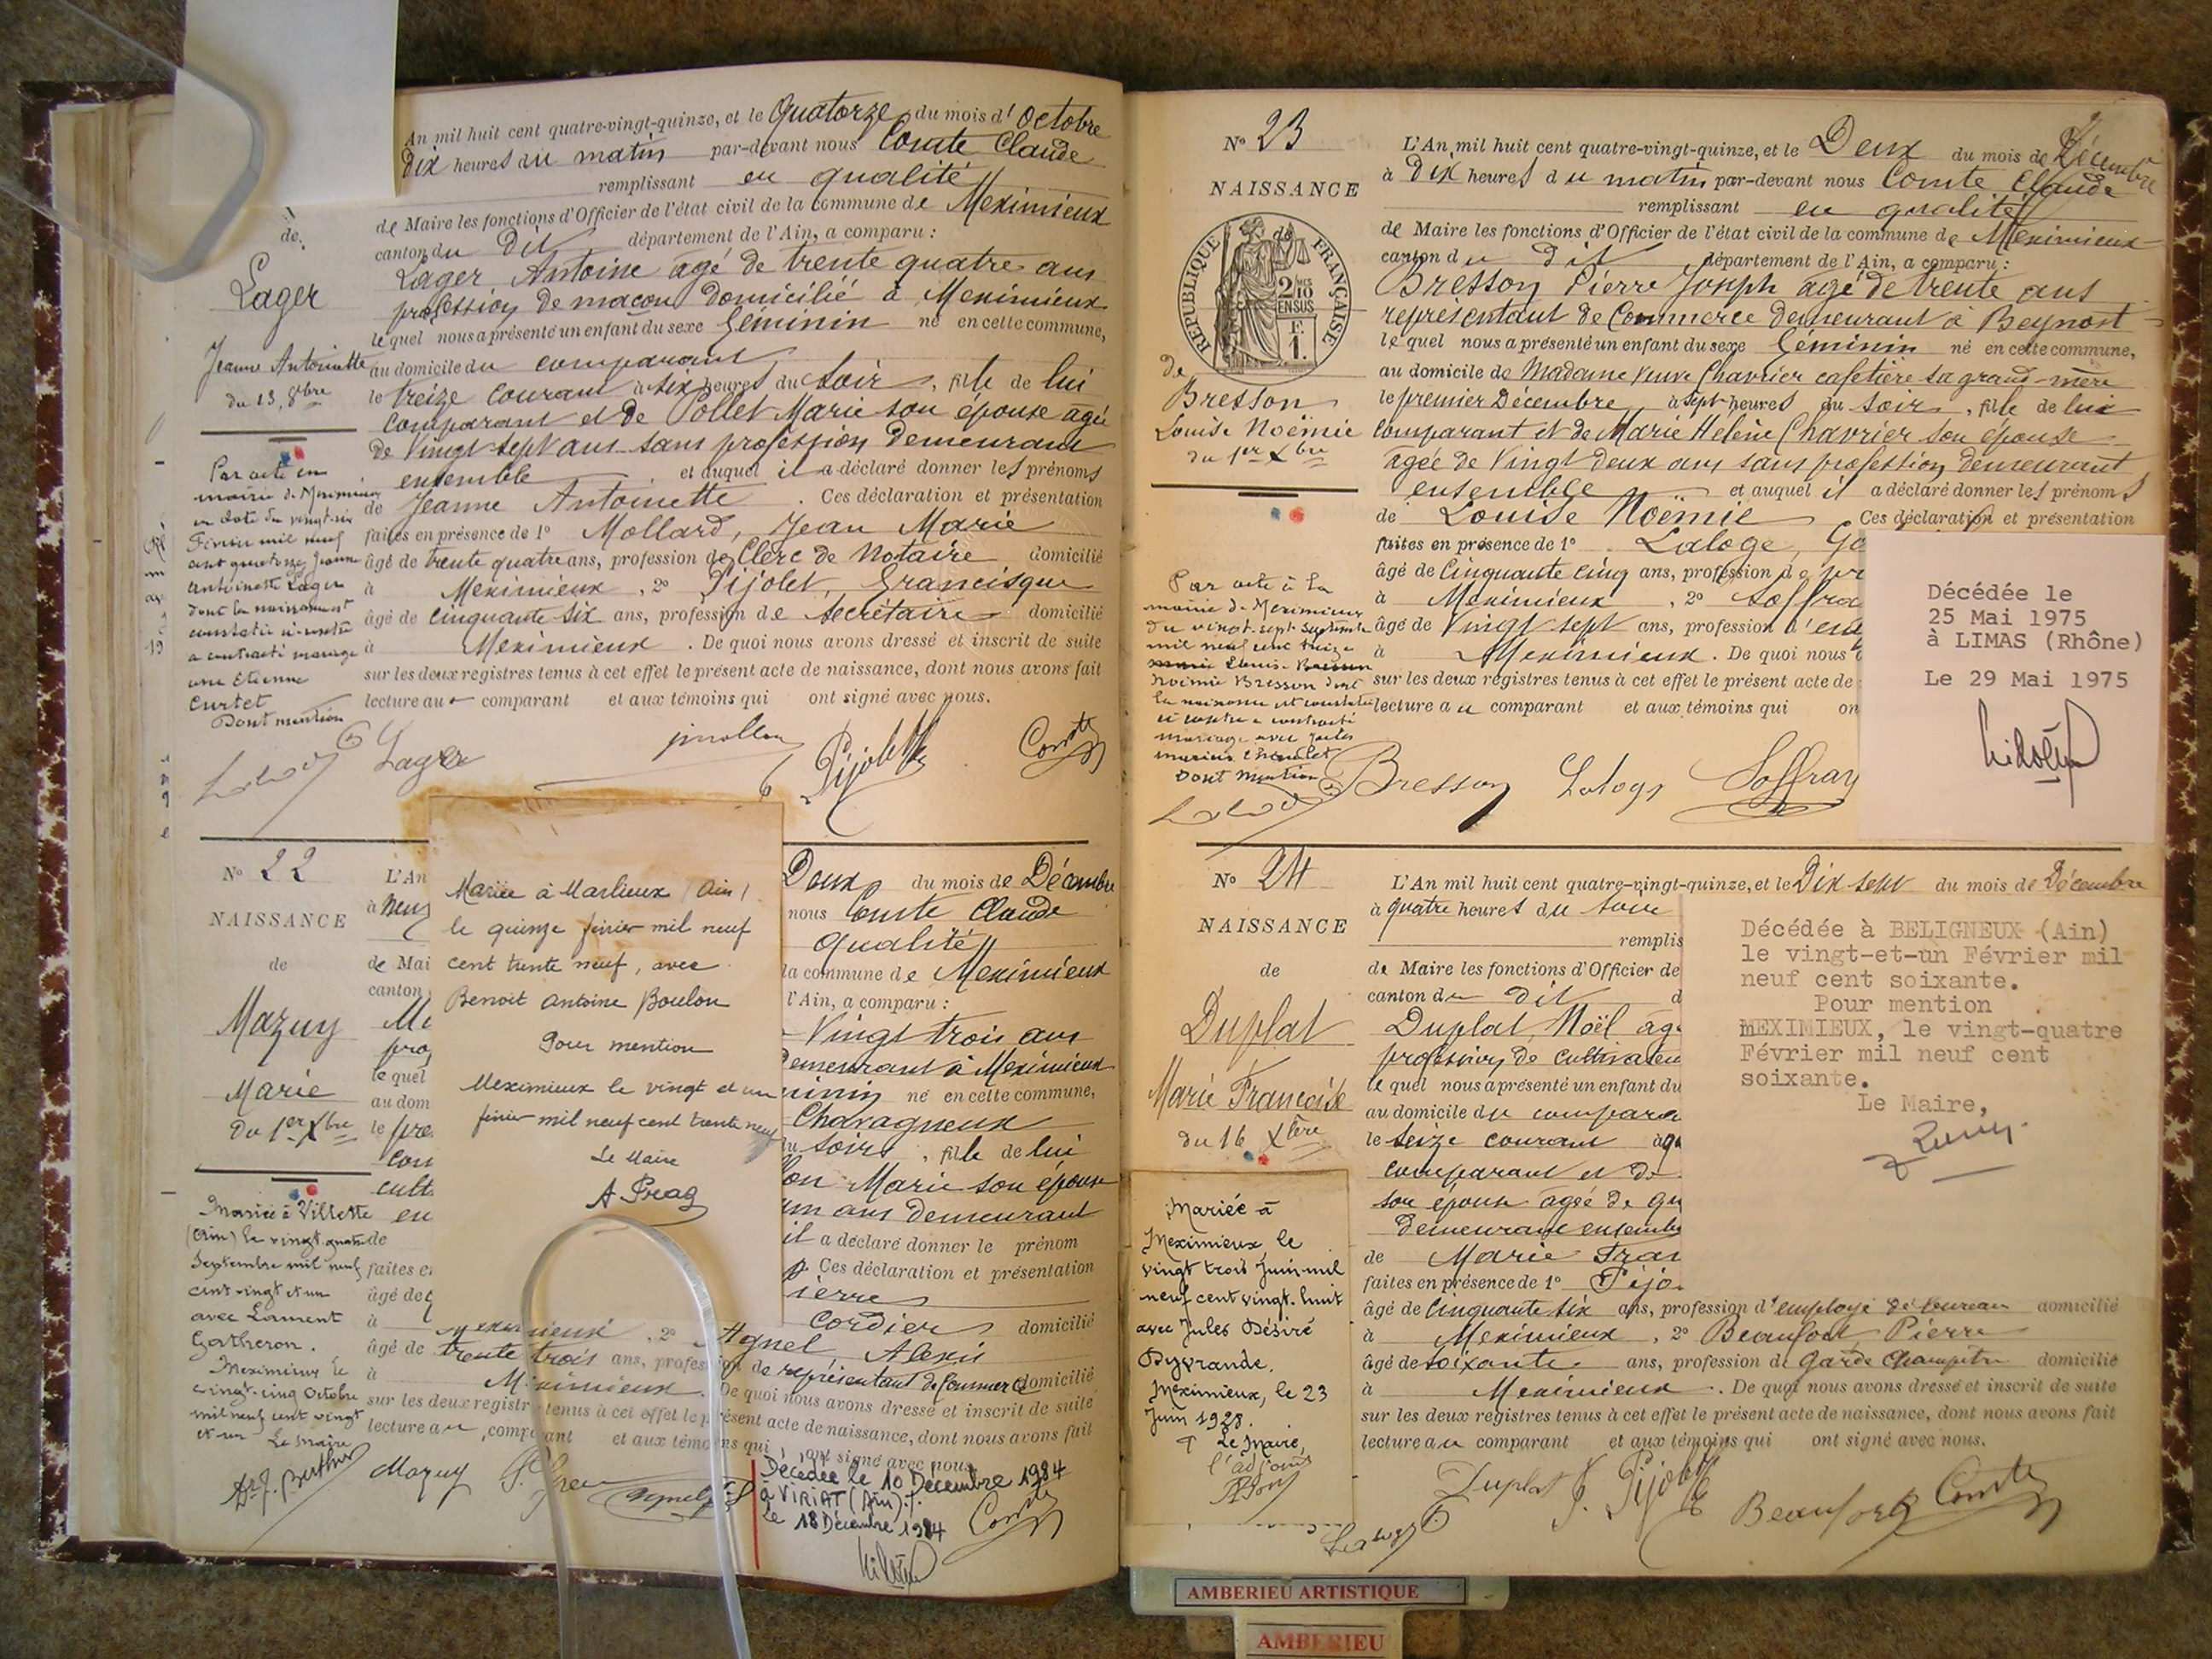 An mil huit cent quatre-vingt-quinze, et le Quatorze du mois d' Octobre
Dix heures du matin par-devant nous Comte Claude
remplissant en qualité
de Maire les fonctions d'Officier de l'état civil de la commune de Meximieux
canton du Dit département de l'Ain, a comparu :
Lager Antoine agé de trente quatre ans
profession de maçon domicilié à Meximieux
lequel nous a présenté un enfant du sexe féminin né en cette commune,
au domicile du comparant
le treize courant à six heures du soir, fille de lui
comparant et de Pollet Marie son épouse agée
de Vingt sept ans sans profession demeurant
ensemble et auquel il a déclaré donner les prénoms
de Jeanne Antoinette . Ces déclaration et présentation
faites en présence de 1° Mollard, Jean Marie
âgé de trente quatre ans, profession de Clerc de Notaire domicilié
à Meximieux , 2° Pijolet, Francisque
âgé de cinquante six ans, profession de Secrétaire domicilié
à Meximieux . De quoi nous avons dressé et inscrit de suite
sur les deux registres tenus à cet effet le présent acte de naissance, dont nous avons fait
lecture au comparant et aux témoins qui ont signé avec nous.
de
Lager
Jeanne Antoinette
du 13 8bre
Par acte en
mairie de Meximieux
en date du vingt-six
Février mil neuf
cent quatorze Jeanne
Antoinette Lager
dont la naissance est
constatée ci-contre
a contracté mariage
avec Etienne
Curtet
Dont mention
Lager
Pijolet
Comte
N° 22
NAISSANCE
de
Mazuy
Marie
du 1er Xbre
Mariée à Villette
(Ain) le vingt quatre
Septembre mil neuf
cent vingt et un
avec Laurent
Gatheron.
Meximieux le
vingt-cinq Octobre
mil neuf cent vingt
et un Le Maire
L'An
à neuf
de Mai
canton
lequel
au dom
le pre
cult
en
de
faites e
âgé de
Mariée à Marlieux (Ain)
le quinze février mil neuf
cent trente neuf, avec
Benoit Antoine Boulon
Pour mention
Meximieux le vingt et un
février mil neuf cent trente neuf
Le Maire
Deux du mois de Décembre
nous Comte Claude
qualité
la commune de Meximieux
l'Ain, a comparu :
Vingt trois ans
demeurant à Meximieux
né en cette commune,
Chavagneux
soir , fille de lui
Marie son épouse
un ans demeurant
il a déclaré donner le prénom
Ces déclaration et présentation
Pierre
Cordier domicilié
à Meximieux , 2° Agnel Alexis
âgé de trente trois ans, profession de représentant de commerce domicilié
à Meximieux . De quoi nous avons dressé et inscrit de suite
sur les deux registres tenus à cet effet le présent acte de naissance, dont nous avons fait
lecture au comparant et aux témoins qui ont signé avec nous.
Mazuy
Décédée le 10 Décembre 1984
à VIRIAT (Ain).
Le 18 Décembre 1984
Comte
N° 23
NAISSANCE
RÉPUBLIQUE FRANÇAISE
2/10 EN SUS
F. 1.
de
Bresson
Louise Noëmie
du 1er Xbre
L'An mil huit cent quatre-vingt-quinze, et le Deux du mois de Décembre
à Dix heures du matin par-devant nous Comte Claude
remplissant en qualité
de Maire les fonctions d'Officier de l'état civil de la commune de Meximieux
canton du dit département de l'Ain, a comparu :
Bresson Pierre Joseph agé de trente ans
représentant de Commerce demeurant à Beynost
lequel nous a présenté un enfant du sexe féminin né en cette commune,
au domicile de Madame Veuve Chavrier cafetière sa grand-mère
le premier Décembre à sept heures du soir, fille de lui
comparant et de Marie Hélène Chavrier son épouse
agée de Vingt deux ans sans profession demeurant
ensemble et auquel il a déclaré donner les prénoms
de Louise Noëmie Ces déclaration et présentation
faites en présence de 1° Laloge,
âgé de Cinquante cinq ans, profession de
à Meximieux , 2° Soffra
âgé de Vingt sept ans, profession d'
à Meximieux . De quoi nous
sur les deux registres tenus à cet effet le présent acte de
lecture au comparant et aux témoins qui on
Par acte à la
mairie de Meximieux
du vingt-sept Septembre
mil neuf cent treize
Louise Bresson
Noëmie Bresson dont
la naissance est constatée
ci contre a contracté
mariage avec
Dont mention
Bresson Laloge Soffray
Décédée le
25 Mai 1975
à LIMAS (Rhône)
Le 29 Mai 1975
N° 24
NAISSANCE
de
Duplat
Marie Françoise
du 16 Xbre
L'An mil huit cent quatre-vingt-quinze, et le Dix sept du mois de Décembre
à quatre heures du soir
remplis
de Maire les fonctions d'Officier de
canton du dit d
Duplat, Noël ag
profession de cultivateu
lequel nous a présenté un enfant du
au domicile du compara
le seize courant à
comparant et de
son épouse agée de qu
demeurant ensemble
de Marie Fran
faites en présence de 1° Pijo
âgé de Cinquante six ans, profession d'employé de bureau domicilié
à Meximieux , 2° Beaufort Pierre
âgé de soixante ans, profession de Garde Champêtre domicilié
à Meximieux . De quoi nous avons dressé et inscrit de suite
sur les deux registres tenus à cet effet le présent acte de naissance, dont nous avons fait
lecture au comparant et aux témoins qui ont signé avec nous.
Décédée à BELIGNEUX (Ain)
le vingt-et-un Février mil
neuf cent soixante.
Pour mention
MEXIMIEUX, le vingt-quatre
Février mil neuf cent
soixante.
Le Maire,
Mariée à
Meximieux, le
vingt trois Juin mil
neuf cent vingt-huit
avec Jules Désiré
Dyvrande.
Meximieux, le 23
Juin 1928.
Le Maire,
l'adjoint
Duplat Pijolet Beaufort Comte
AMBERIEU ARTISTIQUE
AMBERIEU